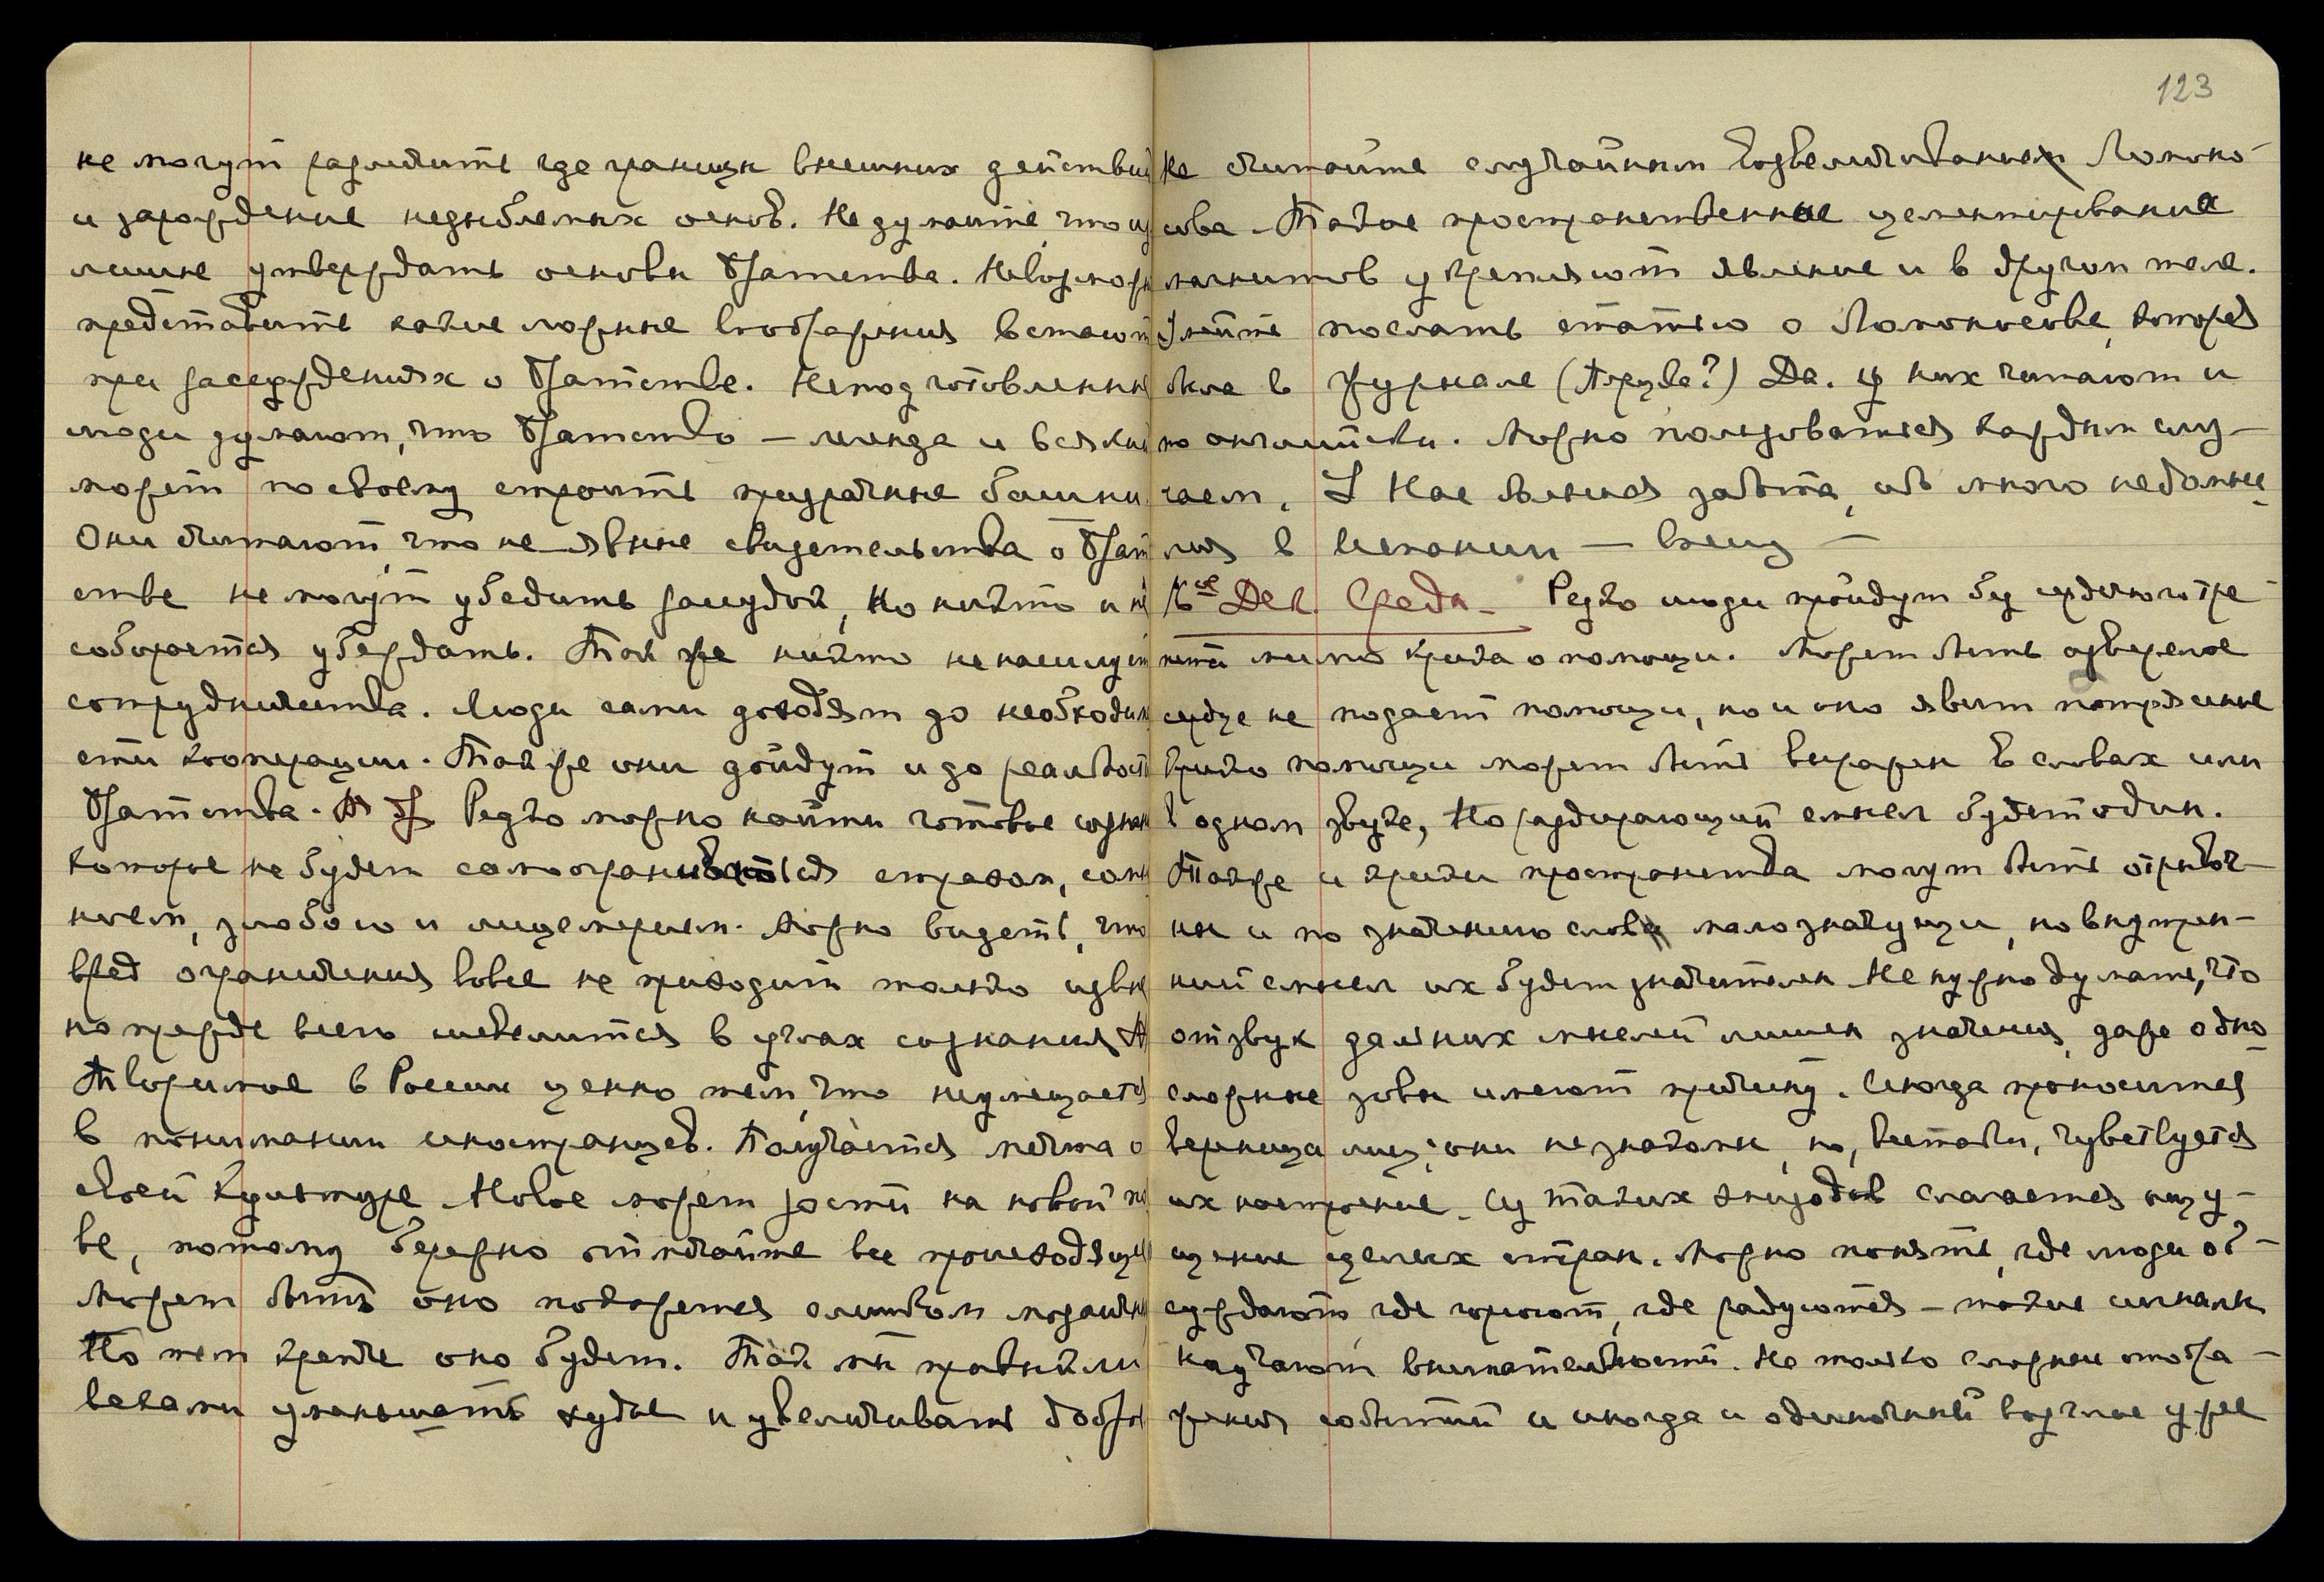 не могут различить где границы внешних действий
и зарождение незыблемых основ. Не думайте, что из
лишне утверждать основы Братства. Невозможн
представить какие ложные воображения встают
при рассуждениях о Братстве. Неподготовленные
люди думают, что Братство — легенда и всякий
может по своему строить призрачные башни.
Они считают, что не явные свидетельства о Брат
стве не могут убедить рассудок, но никто и не
собирается убеждать. Так же никто не насилует
сотрудничества. Люди сами доходят до необходимо
сти кооперации. Так же они дойдут и до реальности
Братства. Редко можно найти готовое сознание
которое не будет самоограничиваться страхом, сомн
нием, злобою и лицемерием. Можно видеть, что
вред ограничения вовсе не приходит только извне
но прежде всего шевелится в углах сознания
Творимое в России ценно тем, что не умещается
в понимании иностранцев. Получается мечта о
своей культуре. Новое может расти на новой поч
ве, потому бережно отмечайте все происходящее
Может быть оно покажется слишком мозаичн
Но тем крепче оно будет. Так мы привыкли
веками уменьшать худое и увеличивать доброе
123
Не считайте случайным возвеличивание Ломоно-
сова. Такое пространственное цементирование
магнитов укрепляют явление и в другом теле.
Умейте послать статью о Ломоносове, которая
была в журнале Да. у них читают и
по английски. Можно пользоваться каждым слу-
чаем. У Нас большая забота, ибо много неболи
лия в Испании — внизу —
16ое Дек. Среда. Редко люди пройдут без сердечного тре-
пета мимо крика о помощи. Может быть озверелое
сердце не подает помощи, но и оно явит потрясение
Крик о помощи может быть выражен в словах или
в одном звуке, но раздирающий смысл будет один.
Также и крики пространства могут быть отрывоч-
ны и по значению слов малозначущи, но внутрен-
ний смысл их будет значителен. Не нужно думать, что
отзвук дальних мыслей лишен значения, даже одно-
сложные зовы имеют причину. Иногда проносится
вереница лиц; они не знакомы, но, все-таки, чувствуется
их настроение. Из таких эпизодов слагается ощу-
щение целых стран. Можно понять, где люди об-
суждают, где горюют, где радуются — такие сигналы
научают внимательности. Не только сложные отобра-
жения событий и иногда и одиночный возглас уже